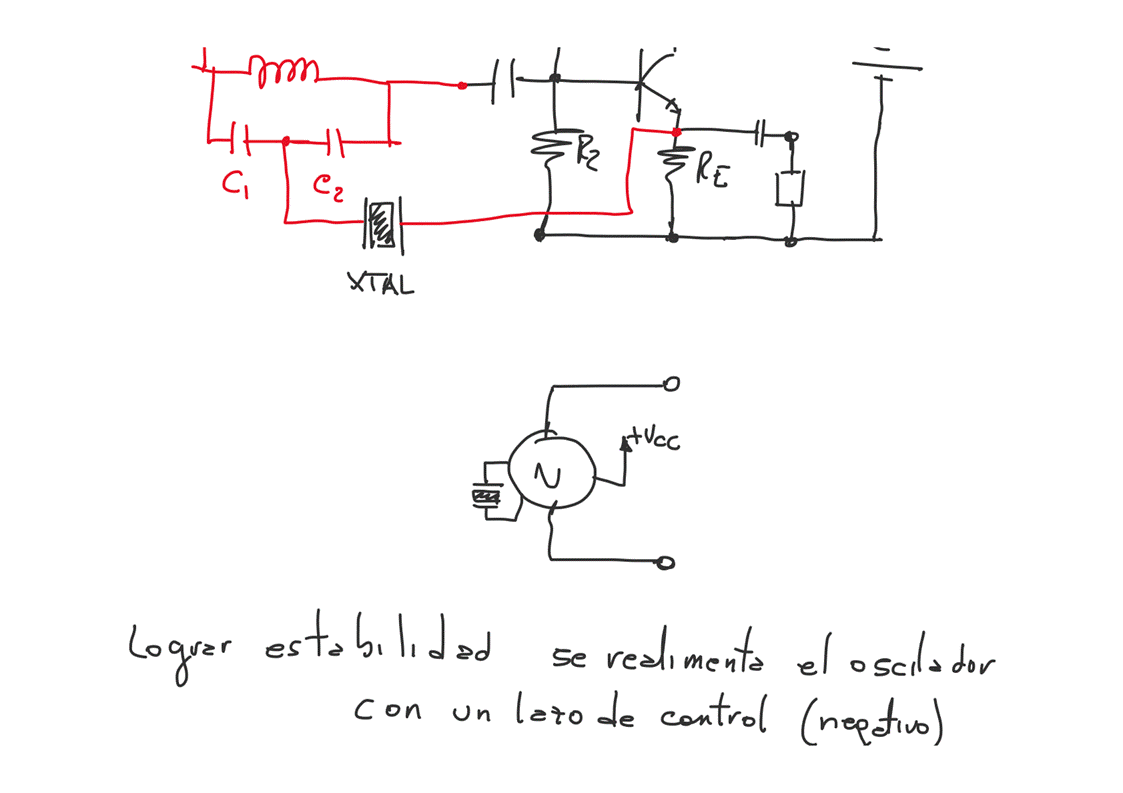 R2
RE
C1 C2
XTAL
+Vcc
N
Lograr estabilidad se realimenta el oscilador
con un lazo de control (negativo)